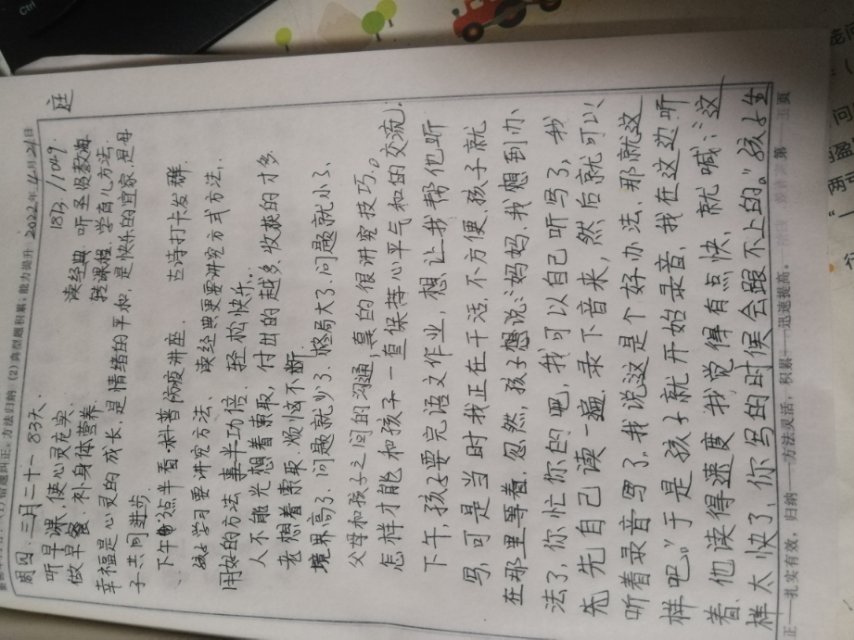 Ctrl
(1)错题纠正，方法归纳 (2)典型题积累，能力提升 2022年 月24日
周四 三月二十一 83天 1873 11049 庭
听早课、使心灵充实. 读经典 听圣贤教诲
做早餐、补身体营养. 转课程、学育儿方法.
幸福是心灵的成长，是情绪的平和，是快乐的宜家 是母
子共同进步.
下午 点半看 科普防疫讲座. 立涛打卡发群.
学习要讲究方法、读经典更要讲究方式方法，
用好的方法事半功倍、轻松快乐.
人不能光想着索取，付出的越多、收获的才多
去想着索取、烦恼不断.
境界高了、问题就少了、格局大了、问题就小了.
父母和孩子之间的沟通，真的很讲究技巧。
怎样才能和孩子一直保持心平气和的交流.
下午，孩子要完语文作业，想让我帮他听
写，可是当时我正在干活，不方便、孩子就
在那里等着. 忽然，孩子想说：妈妈，我想到办
法了，你忙你的吧，我可以自己听写了，我
先先自己读一遍、录下音来，然后就可以
听着录音写了，我说这是个好办法、那就这
样吧。”于是孩子就开始录音，我在这边听
着、他读得速度我觉得有点快、就喊：“这
样太快了，你写的时候会跟不上的。”孩子生
正——扎实有效，归纳——方法灵活，积累——迅速提高。 第 页